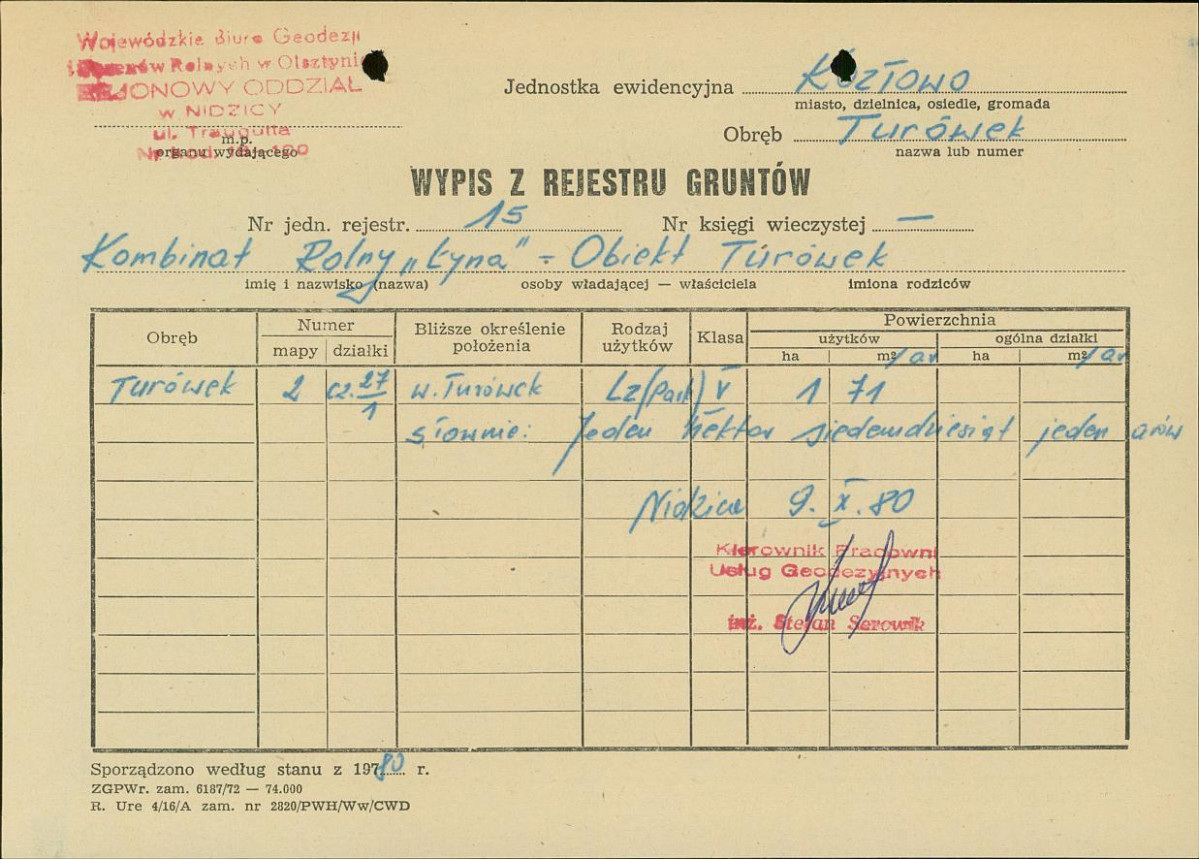 Wojewódzkie Biuro Geodezji
i Terenów Rolnych w Olsztynie
REJONOWY ODDZIAŁ
w NIDZICY
ul. Traugutta
m.p.
organu wydającego
Jednostka ewidencyjna Kozłowo
miasto, dzielnica, osiedle, gromada
Obręb Turówek
nazwa lub numer
WYPIS Z REJESTRU GRUNTÓW
Nr jedn. rejestr. 15 Nr księgi wieczystej —
Kombinat Rolny „Łyna" - Obiekt Turówek
imię i nazwisko (nazwa) osoby władającej — właściciela imiona rodziców
Obręb Numer Bliższe określenie położenia Rodzaj użytków Klasa Powierzchnia
mapy działki użytków ogólna działki
ha m²/ar ha m²/ar
Turówek 2 cz. 27/1 w. Turówek Lz (Park) V 1 71
słownie: Jeden hektar siedemdziesiąt jeden arów
Nidzica 9.X.80
Kierownik Pracowni
Usług Geodezyjnych
inż. Stefan Serowik
Sporządzono według stanu z 197 80 r.
ZGPWr. zam. 6187/72 — 74.000
R. Ure 4/16/A zam. nr 2820/PWH/Ww/CWD